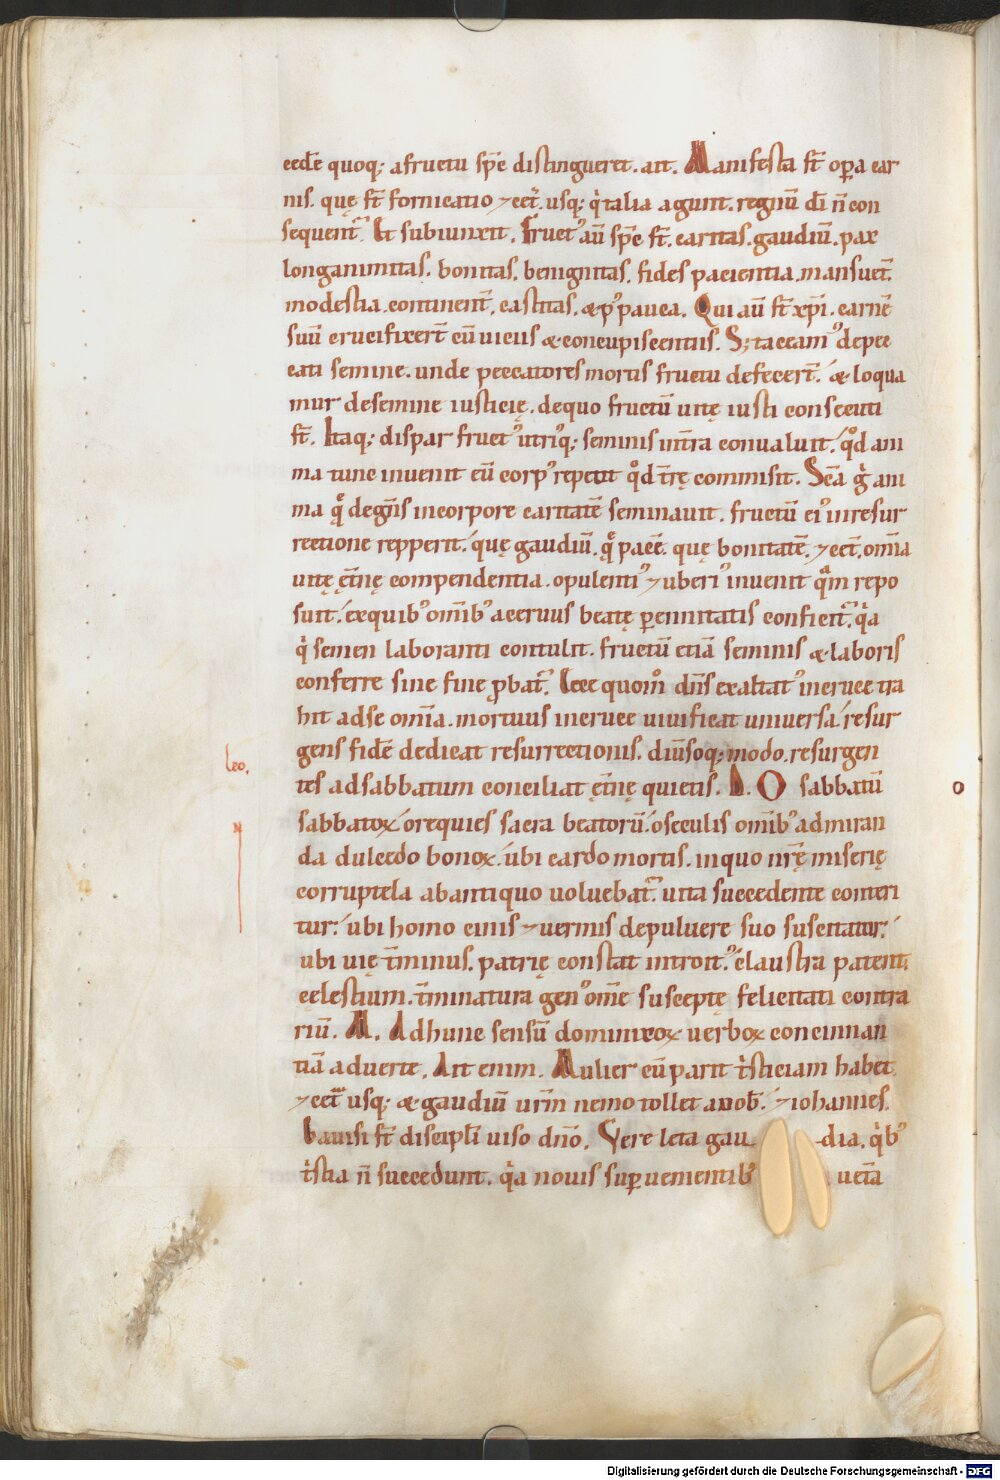 ccd̄e quoq; afructu sp̄c distingueret. ait. Manifesta st̄ oꝑa car
nis. quę st̄ fornicatio ⁊cet̄. usq; q̍ talia agunt. regnū dī n̄ con
sequent᷑. Et subiunxit. Fruct᾿ aū sp̄c st̄. caritas. gaudiū. pax
longanimitas. bonitas. benignitas. fides pacientia. mansuet̄.
modestia. continent̄. castitas. &p᾿ pauca. Qui aū st̄ xp̄i. carnē
suū crucifixer̄t cū uiciis & concupiscentiis. S; taceam᾿ de pec
cati semine. unde peccatores mortis fructu defecer̄t. & loqua
mur de semine iusticię. de quo fructū uitę iusti consecuti
st̄. Itaq; dispar fruct᾿ utri᾿q; seminis int̄ra conualuit. qͦd ani
ma tunc inuenit cū corp᾿ repetit qͦd t̄rę commisit. Sc̄a g̍ ani
ma q̨ degn̄s incorpore caritatē seminauit. fructū ei᾿ inresur
rectione repperit. quę gaudiū. q̨ pacē. quę bonitatē. ⁊cet̄. om̄ia
uitę et̄nę conpendentia. opulenti᾿ ⁊uberi᾿ inuenit qᵃm repo
suit. exquib᾿ om̄ib᾿ aceruus beatę ꝑennitatis conficit᷑. q̍a
q̍ semen laboranti contulit. fructū etiā seminis & laboris
conferre sine fine ꝓbat᷑. Ecce quom̊ dn̄s exaltat᾿ incruce tra
hit adse om̄ia. mortuus incruce uiuificat uniuersa. resur
gens fidē dedicat resurrectionis. diūsoq; modo. resurgen
Leo.
tes adsabbatum conciliat et̄nę quietis. D. O sabbatū
o
sabbatoꝝ. orequies sacra beatorū. oseculis om̄ib᾿ admiran
da dulcedo bonoꝝ. ubi cardo mortis. inquo nr̄ę miserię
corruptela abantiquo uoluebat᷑. uita succedente conteri
tur. ubi homo cinis ⁊uermis depuluere suo suscitatur.
ubi uię t̄minus. patrię constat introit᾿. claustra patent
cęlestium. t̄minatura gen᾿ om̄e susceptę felicitati contra
riū. M. Adhunc sensū dominicoꝝ uerboꝝ concinnan
tiā aduerte. Ait enim. Mulier cū parit t̍sticiam habet.
⁊cet̄ᵃ usq; & gaudiū ur̄m nemo tollet auob̄. ⁊iohannes.
Gauisi st̄ discipl̄i uiso dn̄o. Vere leta gau dia. q̍b᾿
t̍stia n̄ succedunt. q̍a nouis suꝑuenientib᾿ uet̄a
Digitalisierung gefördert durch die Deutsche Forschungsgemeinschaft - DFG